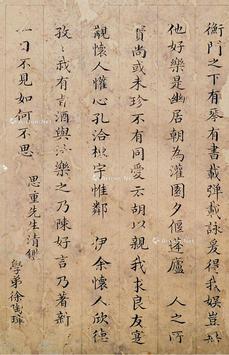 衡門之下有琴有書載彈載詠爰得我娛豈無
他好樂是幽居朝為灌園夕偃蓬廬 人之所
寶尚或未珍不有同愛云胡以親我求良友寔
覯懷人懽心孔洽棟宇惟鄰 伊余懷人欣德
孜〻我有旨酒與汝樂之乃陳好言乃著新
一日不見如何不思
思重先生清鑑
學弟徐